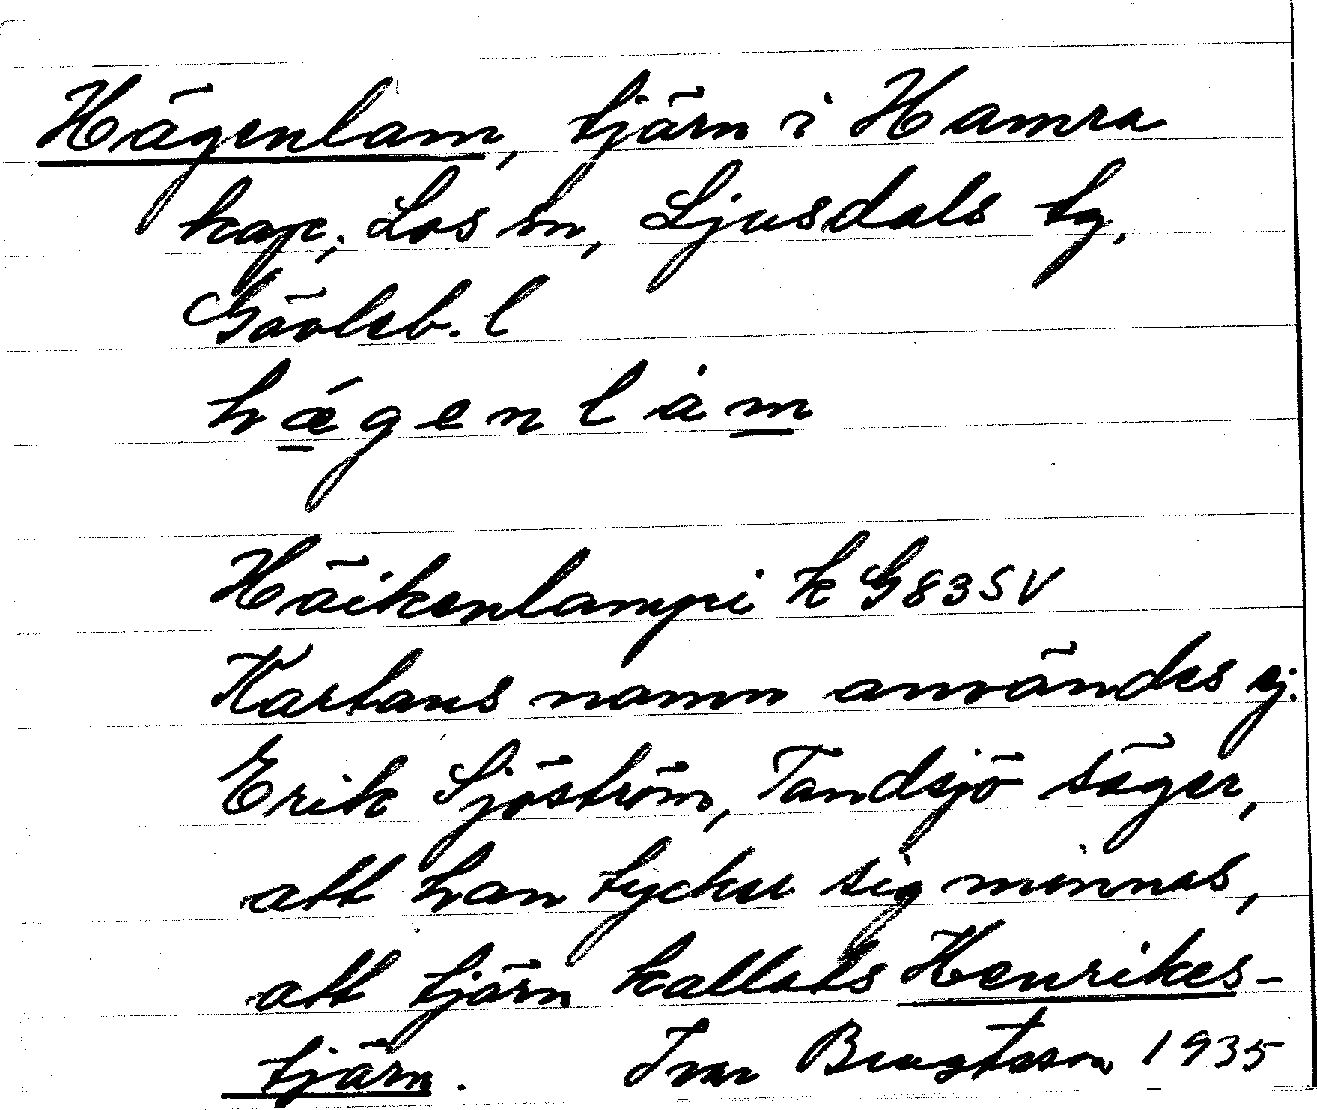 Hägenlam, tjärn i Hamra
kap, Los sn, Ljusdals tg,
Gävleb. l
hǽgenlȧm
Häikenlampi k G83SV
Kartans namn användes ej.
Erik Sjöström, Tandsjö säger,
att han tycker sig minnas,
att tjärn kallats Henrikes-
tjärn. Ivar Bengtsson 1935